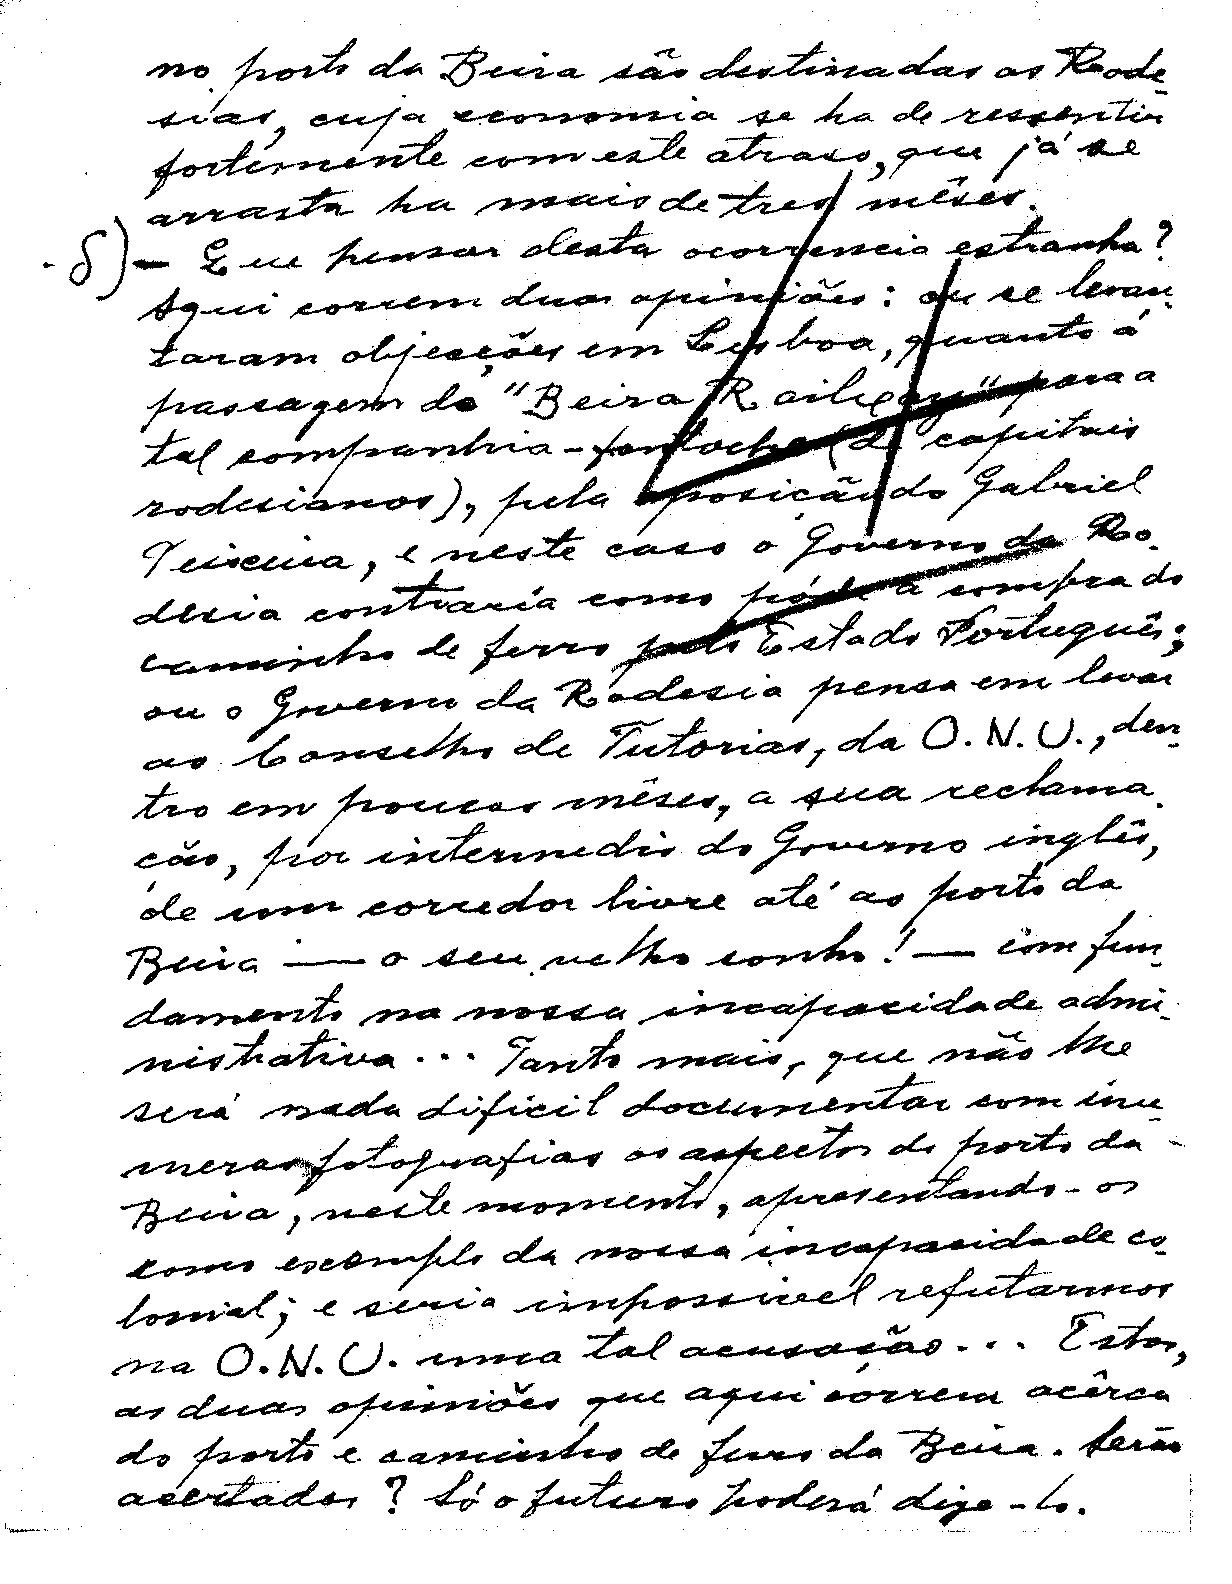 no porto da Beira são destinadas as Rode-
sias, cuja economia se ha de ressentir
fortemente com este atraso, que já se
arrasta ha mais de tres mêses.
- δ) — Que pensar desta ocorrencia estranha?
Aqui correm duas opiniões: ou se levan-
taram objecções em Lisboa, quanto á
passagem da "Beira Railway" para a
tal companhia-fantoche (de capitais
rodesianos), pela oposição do Gabriel
Teixeira, e neste caso o Governo da Ro-
desia contraria como póde a compra do
caminho de ferro pelo Estado Português;
ou o Governo da Rodesia pensa em levar
ao Conselho de Tutorias, da O.N.U., den-
tro em poucos mêses, a sua reclama-
ção, por intermedio do Governo inglês,
de um corredor livre até ao porto da
Beira — o seu velho sonho! — com fun-
damento na nossa incapacidade admi-
nistrativa... Tanto mais, que não lhe
será nada dificil documentar com inu-
meras fotografias os aspectos do porto da
Beira, neste momento, apresentando-os
como exemplo da nossa incapacidade co-
lonial; e seria impossivel refutarmos
na O.N.U. uma tal acusação... Estas,
as duas opiniões que aqui correm acêrca
do porto e caminho de ferro da Beira. Serão
acertadas? Só o futuro poderá dize-lo.